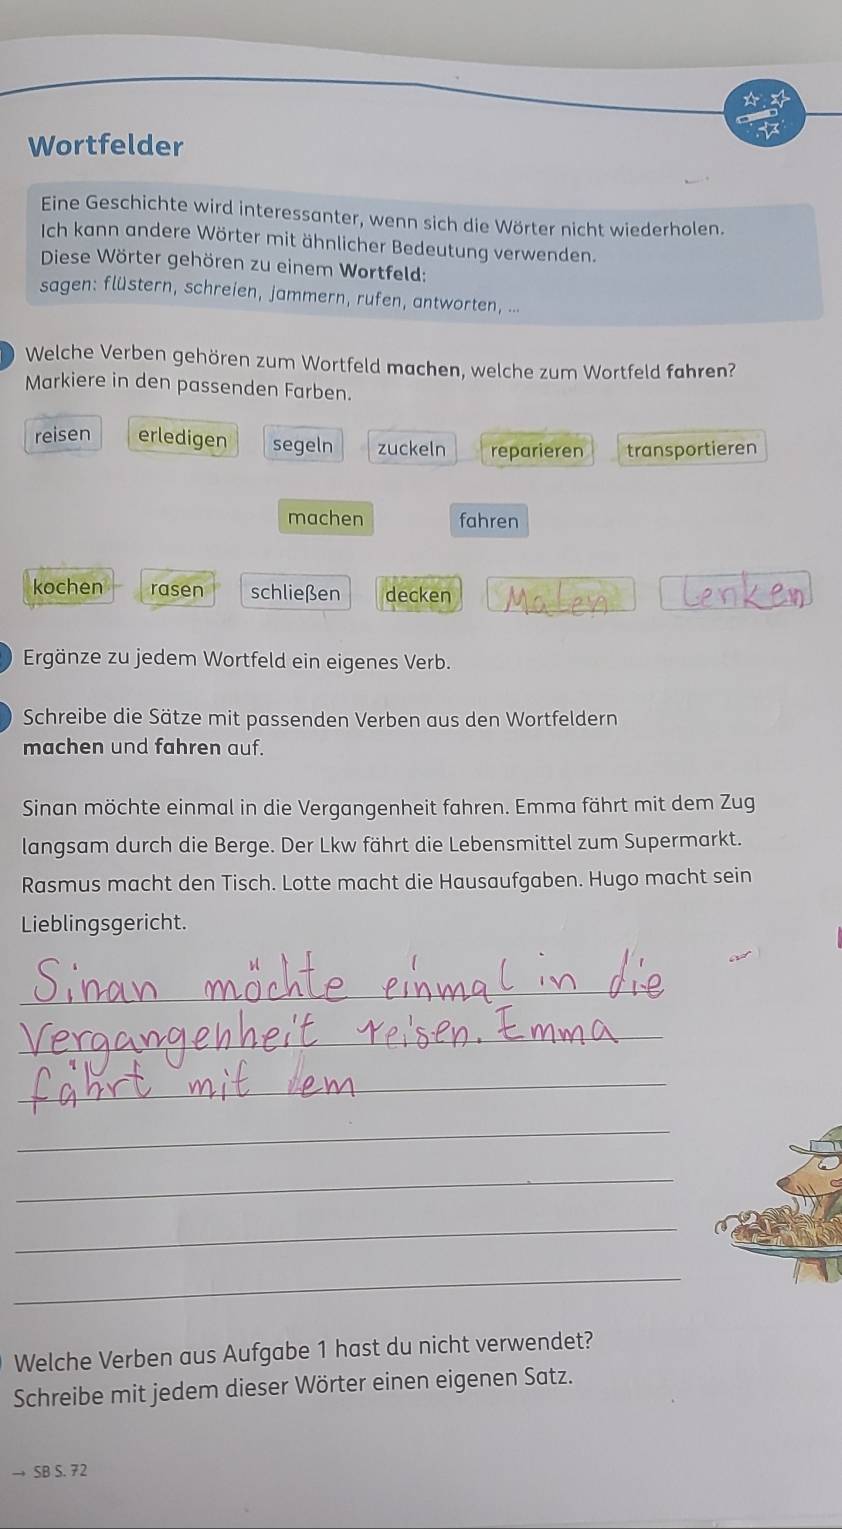 Wortfelder
Eine Geschichte wird interessanter, wenn sich die Wörter nicht wiederholen.
Ich kann andere Wörter mit ähnlicher Bedeutung verwenden.
Diese Wörter gehören zu einem Wortfeld:
sagen: flüstern, schreien, jammern, rufen, antworten, ...
Welche Verben gehören zum Wortfeld machen, welche zum Wortfeld fahren?
Markiere in den passenden Farben.
reisen erledigen segeln zuckeln reparieren transportieren
machen fahren
kochen rasen schließen decken Malen Lenken
Ergänze zu jedem Wortfeld ein eigenes Verb.
Schreibe die Sätze mit passenden Verben aus den Wortfeldern
machen und fahren auf.
Sinan möchte einmal in die Vergangenheit fahren. Emma fährt mit dem Zug
langsam durch die Berge. Der Lkw fährt die Lebensmittel zum Supermarkt.
Rasmus macht den Tisch. Lotte macht die Hausaufgaben. Hugo macht sein
Lieblingsgericht.
Sinan möchte einmal in die
Vergangenheit reisen. Emma
fährt mit dem
Welche Verben aus Aufgabe 1 hast du nicht verwendet?
Schreibe mit jedem dieser Wörter einen eigenen Satz.
→ SB S. 72